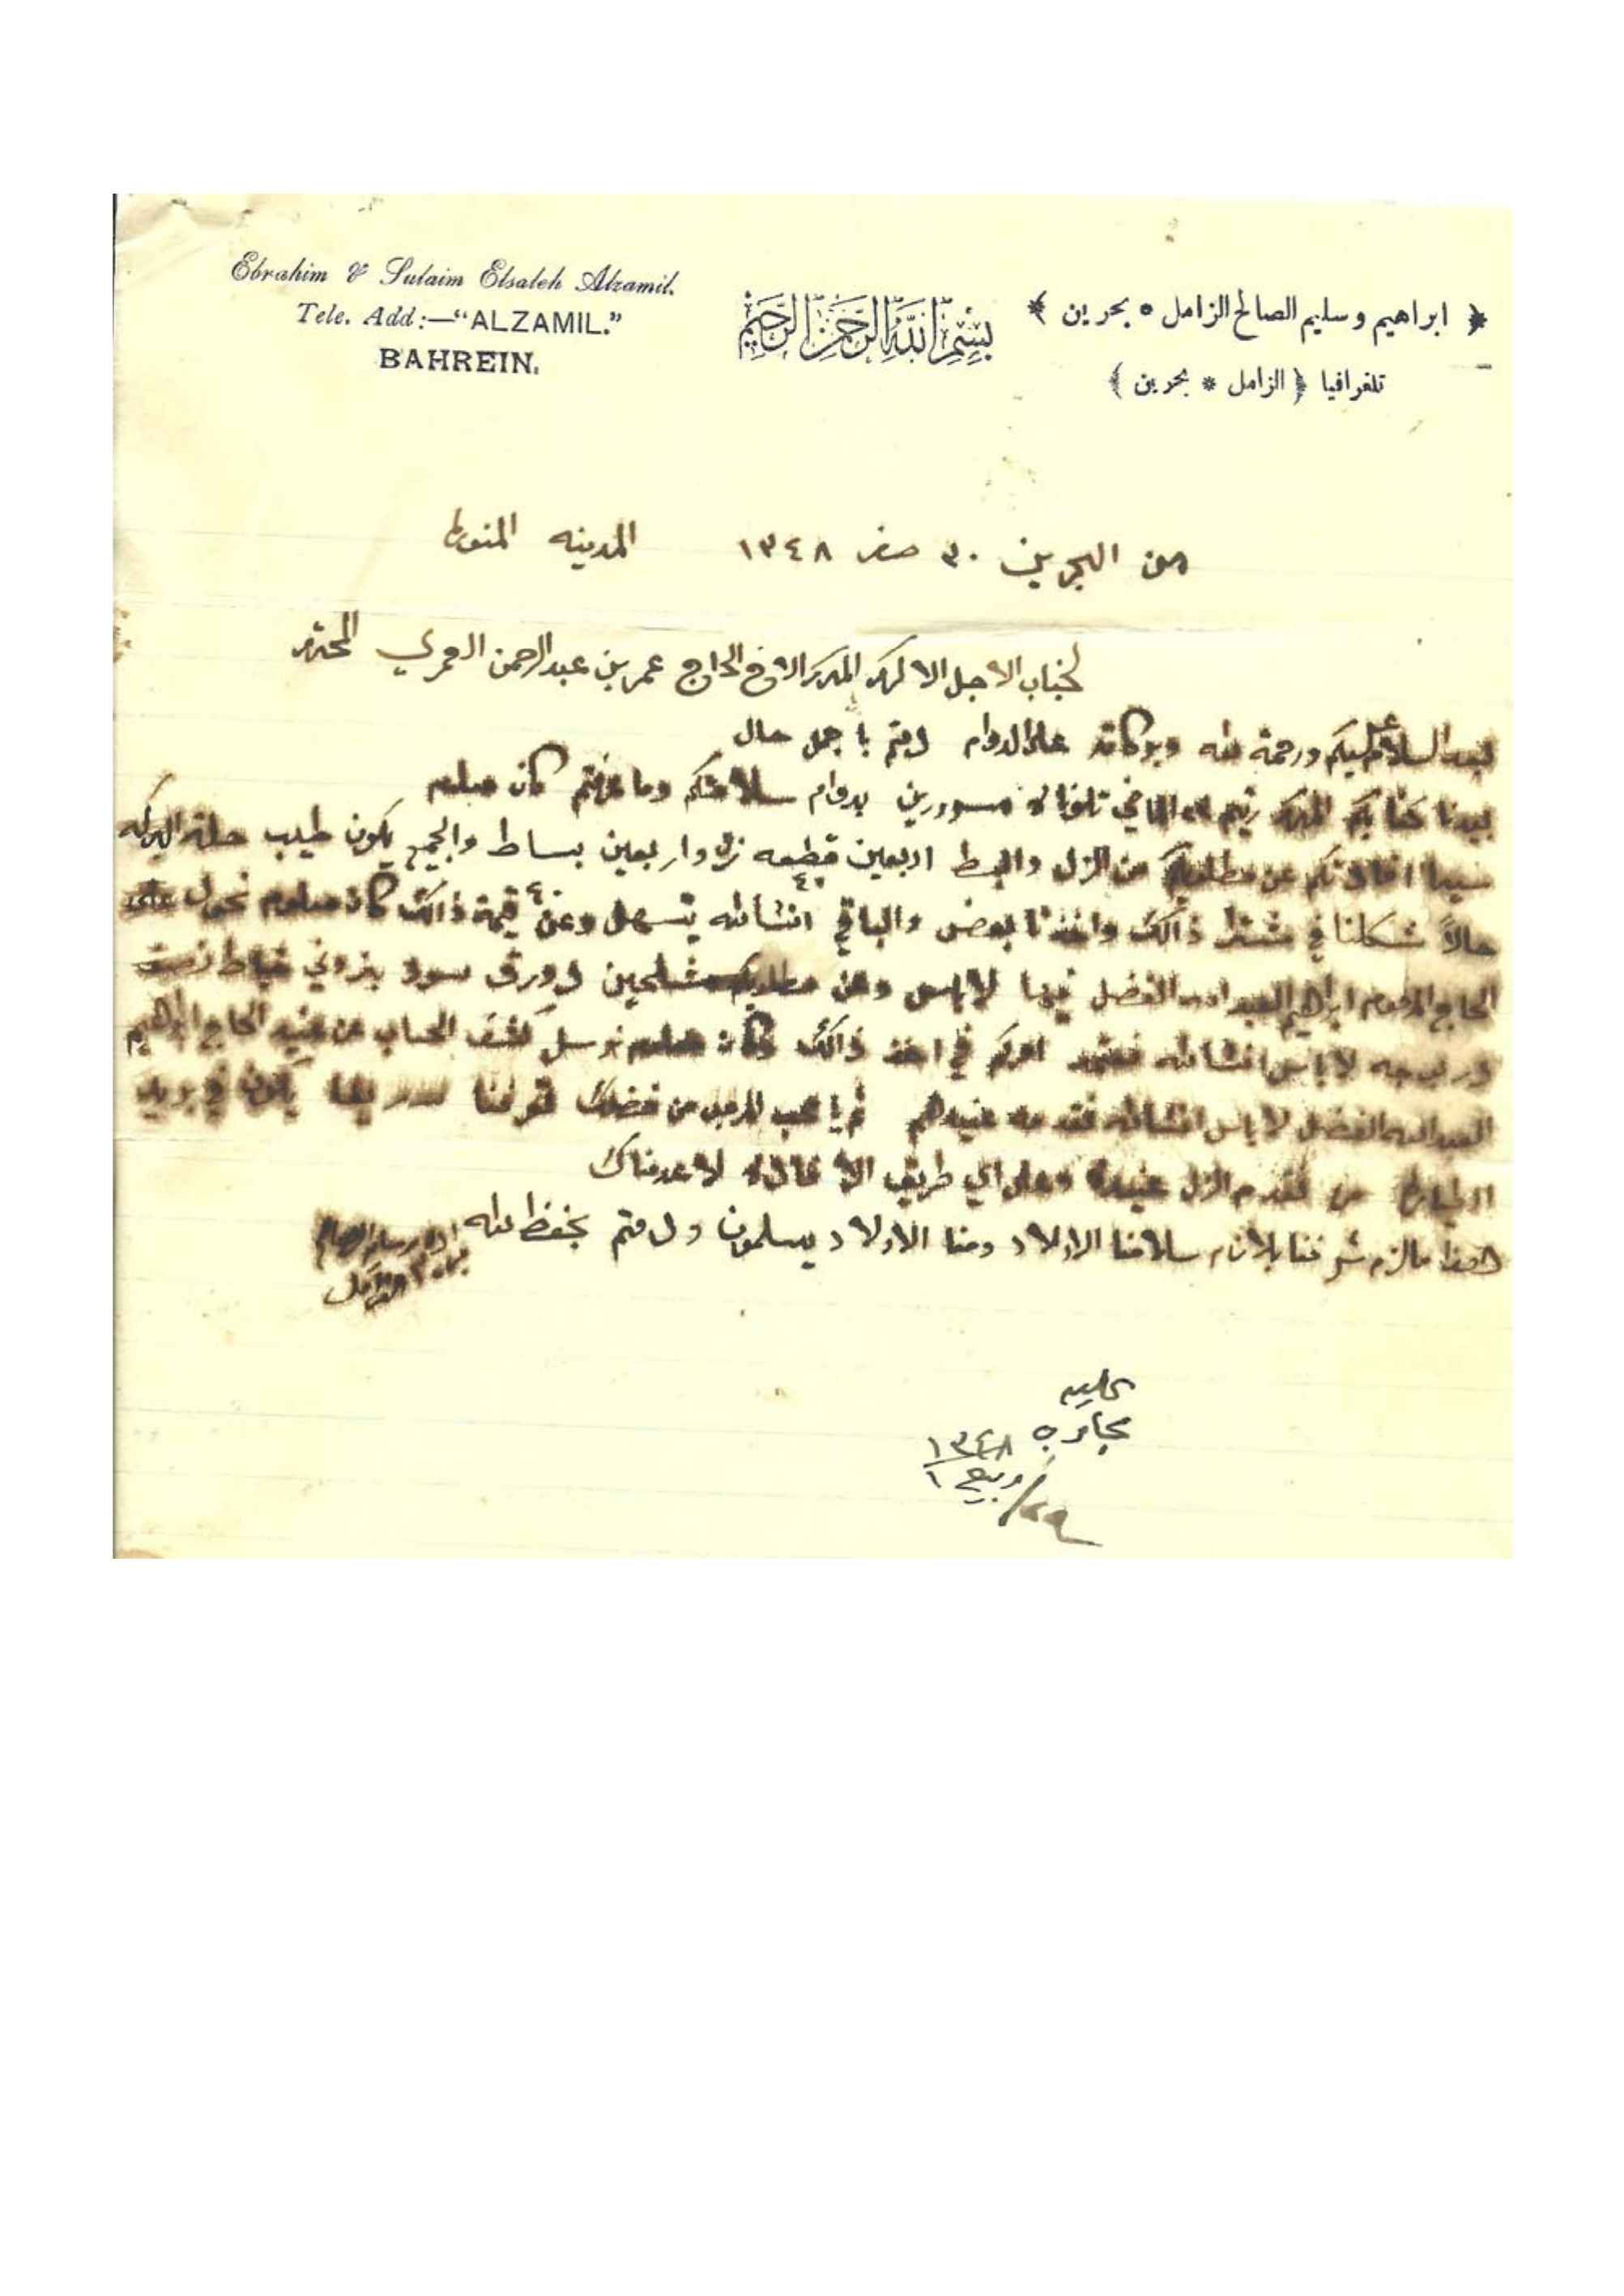 Ebrahim & Sulaim Elsaleh Alzamil.
Tele. Add:—"ALZAMIL."
BAHREIN.
بسم الله الرحمن الرحيم
﴿ ابراهيم وسليم الصالح الزامل * بحرين ﴾
تلغرافيا ﴿ الزامل * بحرين ﴾
من البحرين ٣٠ صفر ١٣٤٨ المدينه المنوره
لجناب الاجل الامجد المكرم الاخ الحاج عمر بن عبدالرحمن العمري المحترم
بعد السلام عليكم ورحمة الله وبركاته على الدوام دمتم باجمل حال
بيدنا كتابكم المكرم رقيم الماضي تلوناه مسرورين بدوام سلامتكم وما عرفتم كان معلوم
سيما افادتكم عن مطلوبكم من الزل والبسط اربعين قطعه زل واربعين بساط والجميع يكون طيب
٤٠ ٤٠
حالاً شكلنا في مشترا ذالك واخذنا بعض والباقي انشاالله يتسهل وعن قيمة ذالك كان معلوم نحول على
الحاج ابراهيم العبدالله الفضل فيها لاباس وعن مطلوبكم مشلحين ورق سود
لاباس انشاالله نعتمد امركم في اخذ ذالك كان معلوم نرسل كشف الحساب عن يد الحاج ابراهيم
العبدالله الفضل لاباس انشاالله نقدمه بيدهم ثم يا محب من فضلك تعرفنا يكون في بريد
الطياره عن نقدم الزل بيده وعلى اي طريق الافاده لاعدمناك
هذا مالزم شرفنا بلازم سلامنا الاولاد ومنا الاولاد يسلمون ودمتم بحفظ الله
الزامل
عليه
مجاوبه
١٣٤٨
٢٩/ ربيع ١